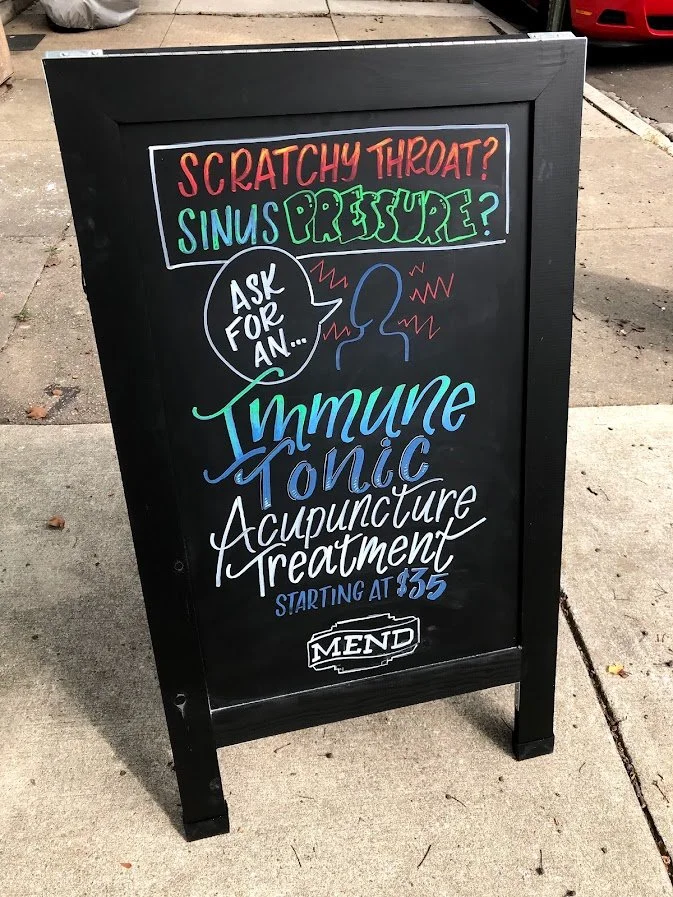 SCRATCHY THROAT?
SINUS PRESSURE?
ASK
FOR
AN...
Immune
Tonic
Acupuncture
Treatment
STARTING AT $35
MEND